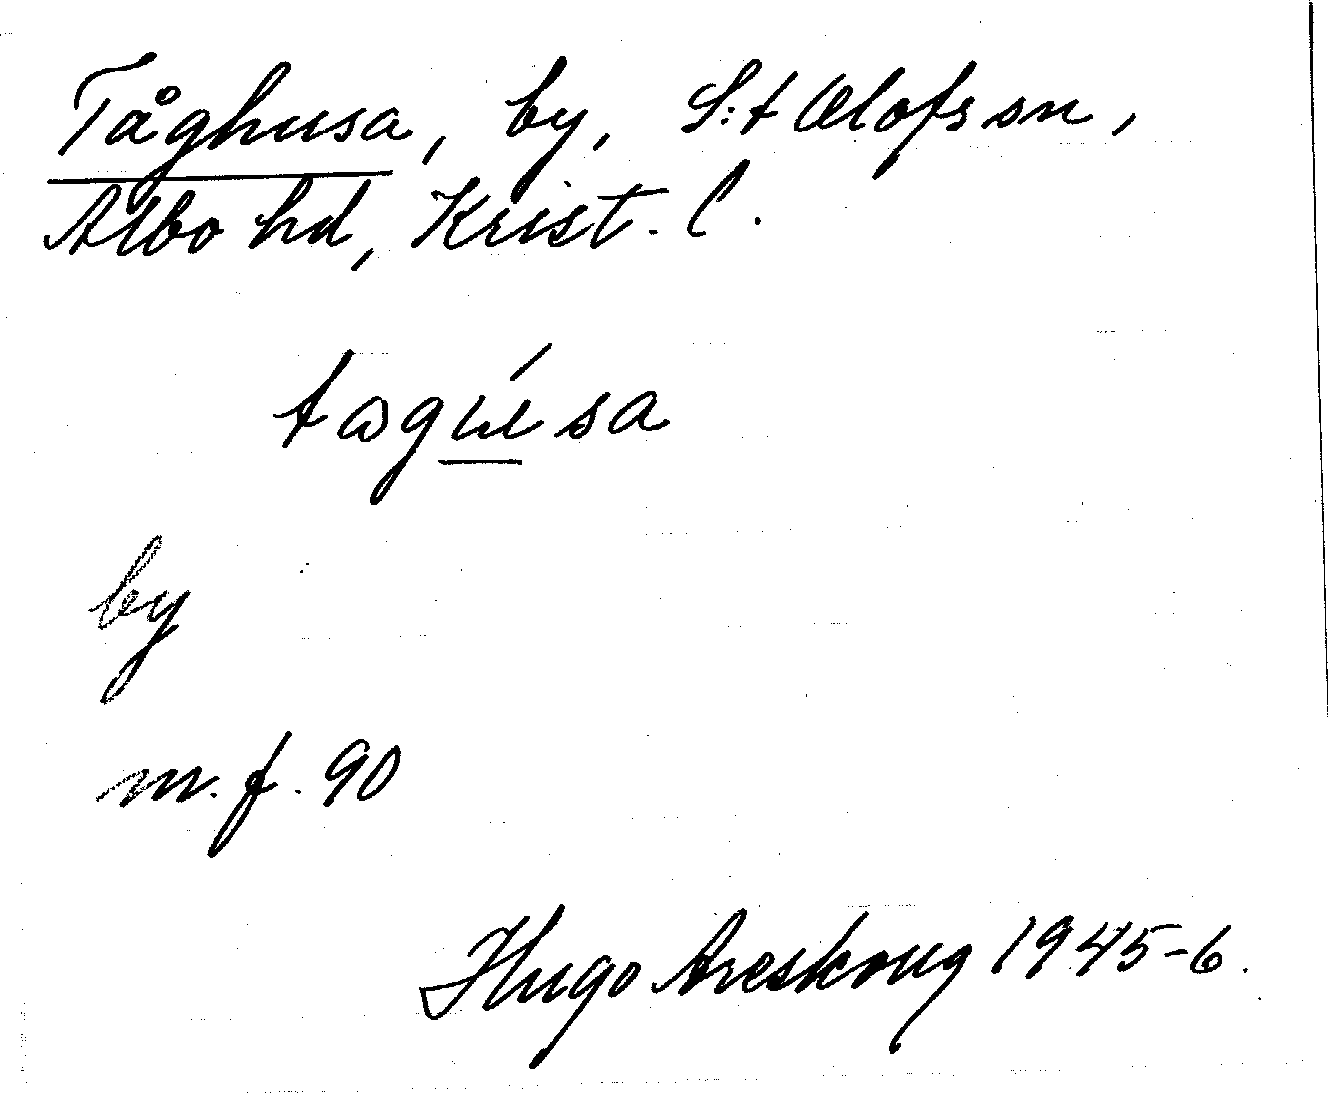 Tåghusa, by, S:t Olofs sn,
Albo hd, Krist. l.
by
m. f. 90
Hugo Areskoug 1945-6.